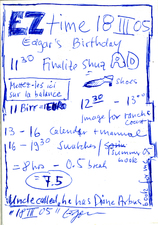 EZ time 18 III 05
Edgar's Birthday
11 30 Finalize Shuz R D
Mettez-les ici
sur la balance
shoes
11 Birr
12 30 - 13
Image for
Cover
13 - 16 Calendar + manual
16 - 19 30 Swatches
= 8 hrs - 0.5 break
= 7.5
Uncle called, he has Diane Arbus
"18 III 05"